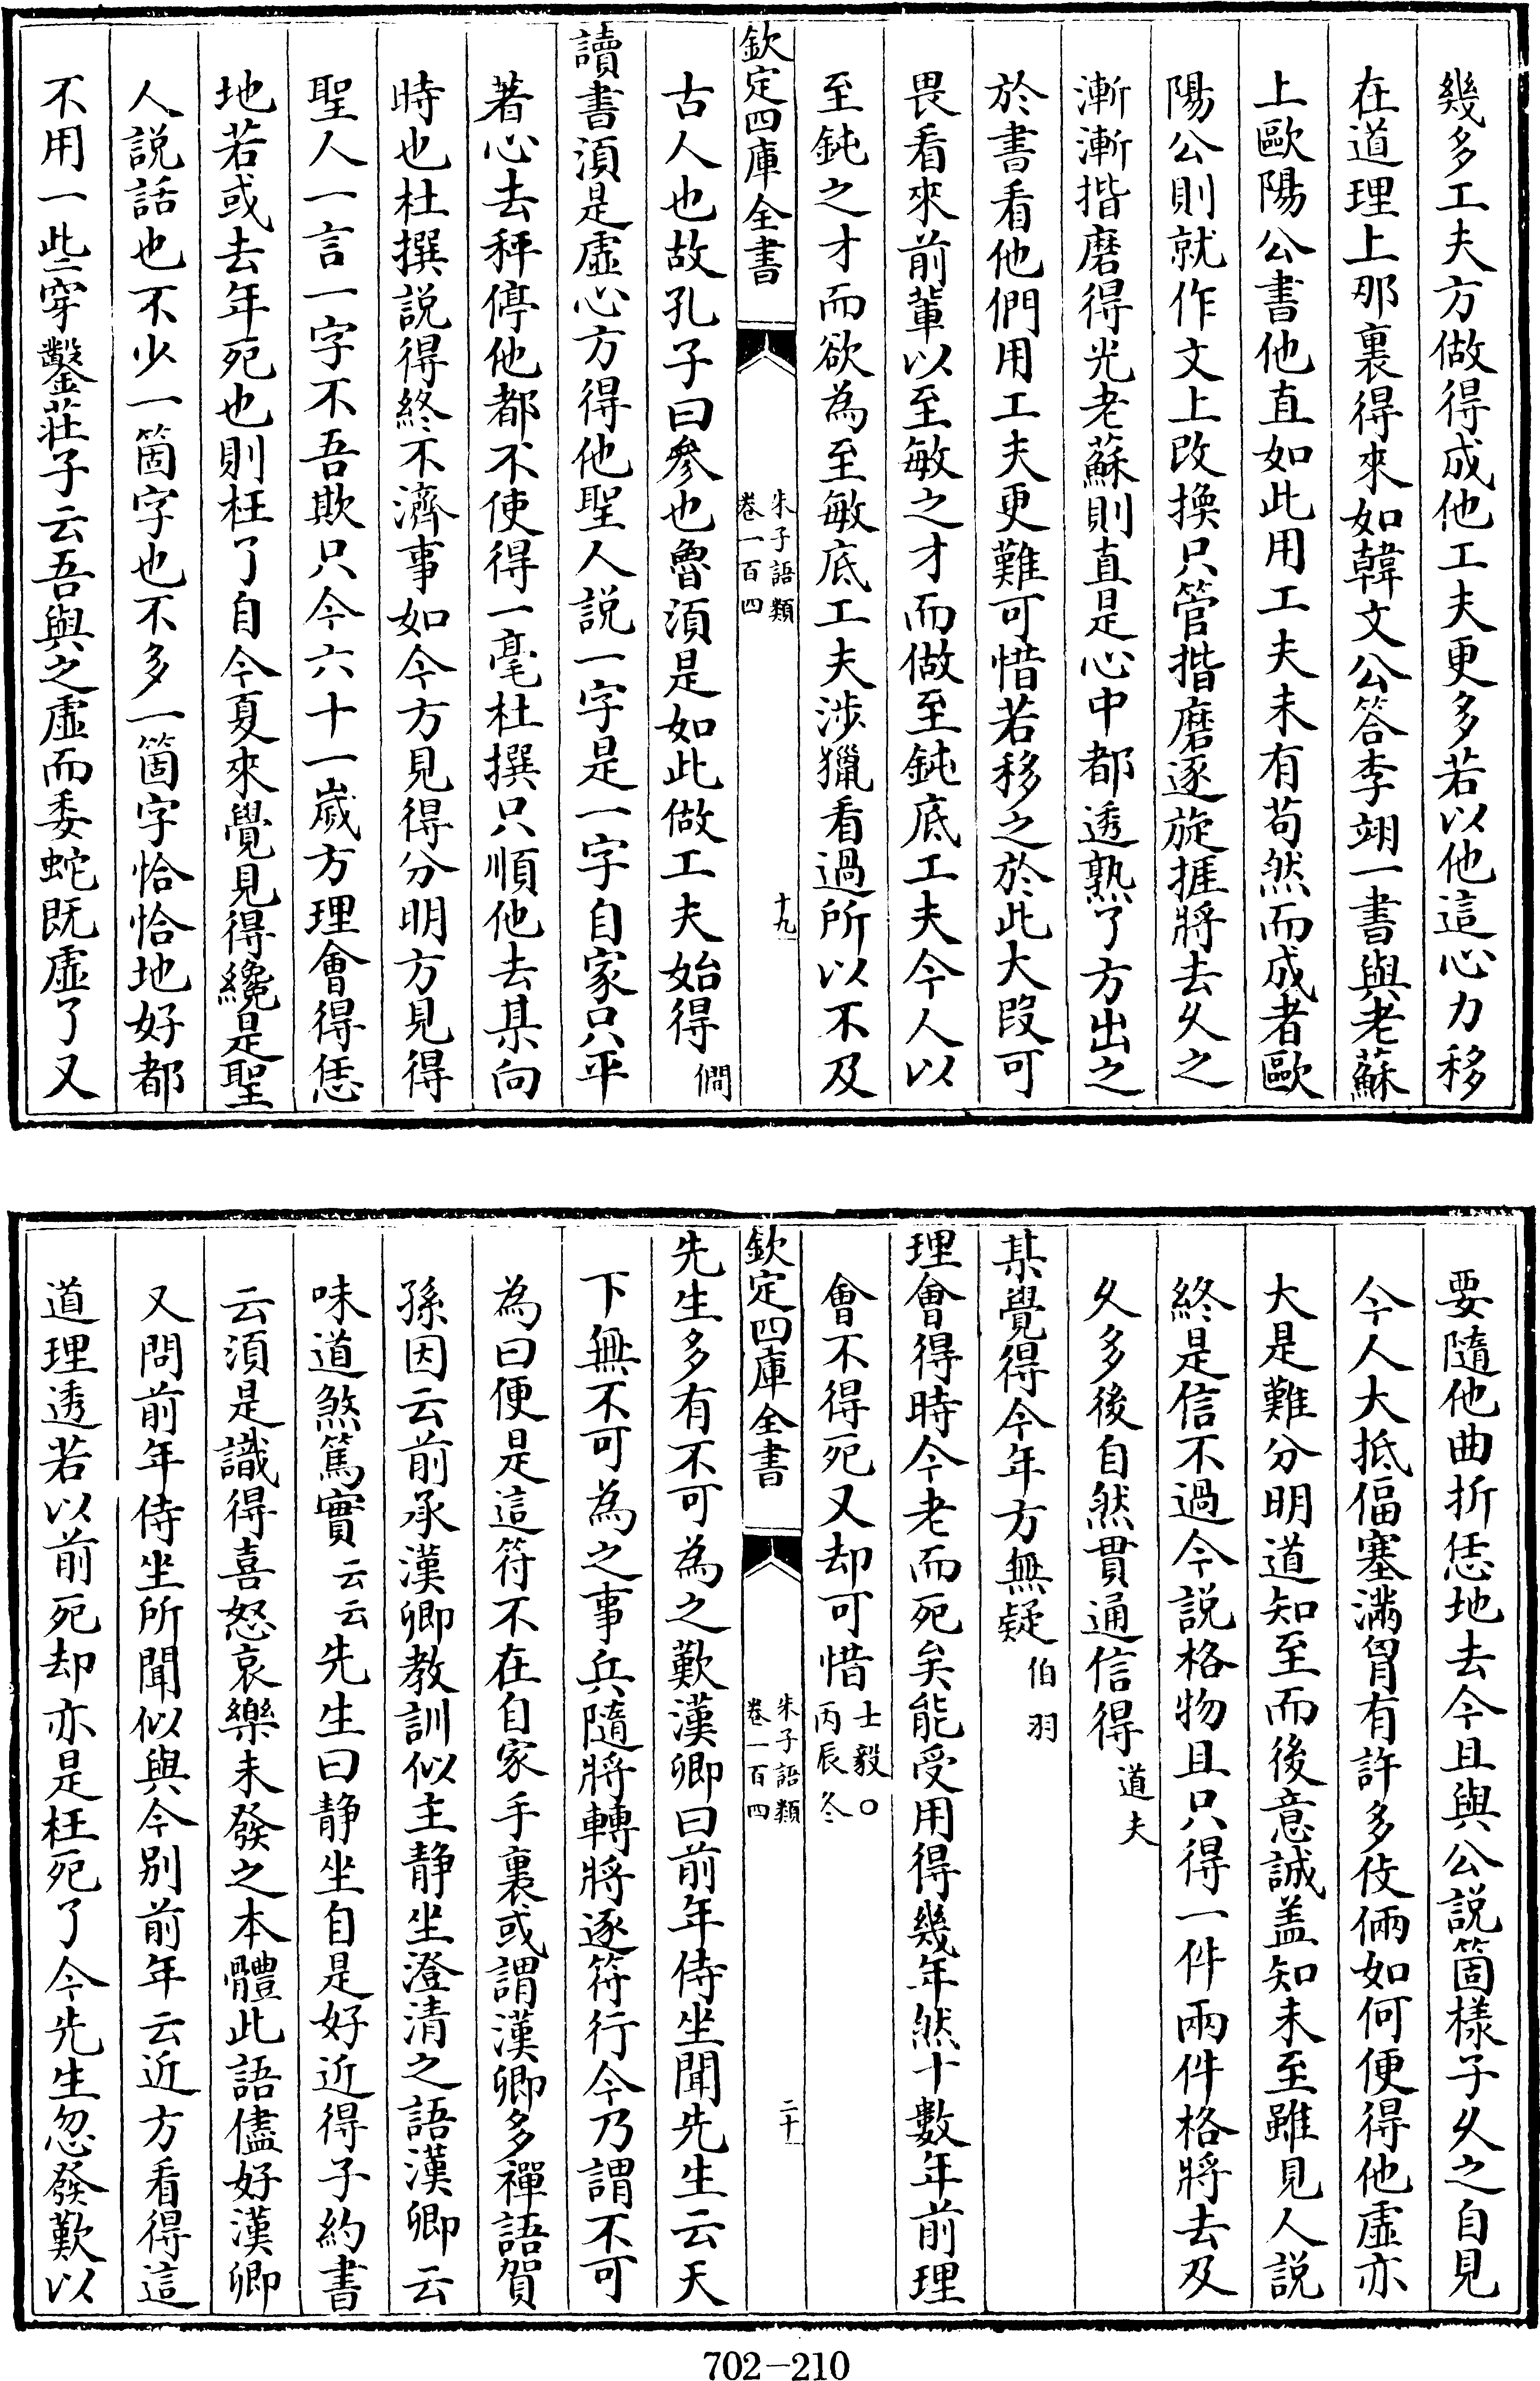 幾多工夫方做得成他工夫更多若以他這心力移
在道理上那裏得來如韓文公答李翊一書與老蘇
上歐陽公書他直如此用工夫未有苟然而成者歐
陽公則就作文上改換只管揩磨逐旋捱將去久之
漸漸揩磨得光老蘇則直是心中都透熟了方出之
於書看他們用工夫更難可惜若移之於此大段可
畏看來前輩以至敏之才而做至鈍底工夫今人以
至鈍之才而欲為至敏底工夫涉獵看過所以不及
欽定四庫全書
朱子語類
卷一百四
十九
古人也故孔子曰參也魯須是如此做工夫始得 僩
讀書須是虛心方得他聖人説一字是一字自家只平
著心去秤停他都不使得一毫杜撰只順他去某向
時也杜撰説得終不濟事如今方見得分明方見得
聖人一言一字不吾欺只今六十一歲方理會得恁
地若或去年死也則枉了自今夏來覺見得纔是聖
人説話也不少一箇字也不多一箇字恰恰地好都
不用一些穿鑿莊子云吾與之虛而委蛇既虛了又
要隨他曲折恁地去今且與公説箇樣子久之自見
今人大抵偪塞滿胷有許多伎倆如何便得他虛亦
大是難分明道知至而後意誠盖知未至雖見人説
終是信不過今説格物且只得一件兩件格將去及
久多後自然貫通信得 道夫
某覺得今年方無疑 伯羽
理會得時今老而死矣能受用得幾年然十數年前理
會不得死又却可惜 士毅○
丙辰冬
欽定四庫全書
朱子語類
卷一百四
二十
先生多有不可為之歎漢卿曰前年侍坐聞先生云天
下無不可為之事兵隨將轉將逐符行今乃謂不可
為曰便是這符不在自家手裏或謂漢卿多禪語賀
孫因云前承漢卿教訓似主静坐澄清之語漢卿云
味道煞篤實 云云 先生曰静坐自是好近得子約書
云須是識得喜怒哀樂未發之本體此語儘好漢卿
又問前年侍坐所聞似與今别前年云近方看得這
道理透若以前死却亦是枉死了今先生忽發歎以
702-210